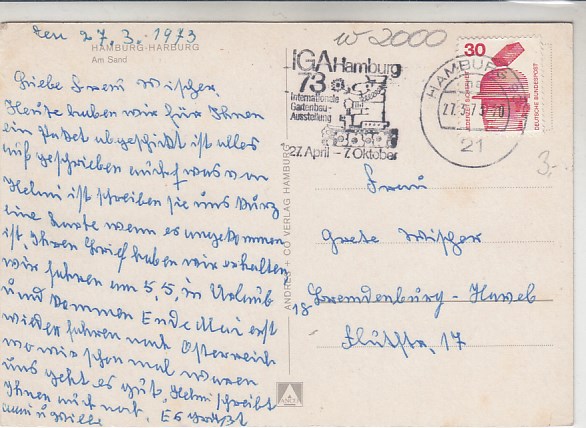 den 27. 3. 1973
HAMBURG-HARBURG
Am Sand
Liebe Frau Wischer.
Heute haben wir für Ihnen
ein Paket abgeschickt ist alles
auf geschrieben auch was von
Helmi ist schreiben sie uns kurz
eine Karte wenn es angekommen
ist, Ihren Brief haben wir erhalten
wir fahren am 5,5, in Urlaub
und kommen Ende Mai erst
wieder fahren nach Österreich
wo wir schon mal waren
uns geht es gut, Helmi schreibt
Ihnen auch noch. Es grüßt
u Willi
ANDRES + CO VERLAG HAMBURG
W 2000
IGA Hamburg
73
Internationale
Gartenbau-
Ausstellung
27. April - 7. Oktober
HAMBURG
27.3.73-20
21
30
DEUTSCHE BUNDESPOST
3,-
Frau
Grete Wischer
18 Brandenburg-Havel
17